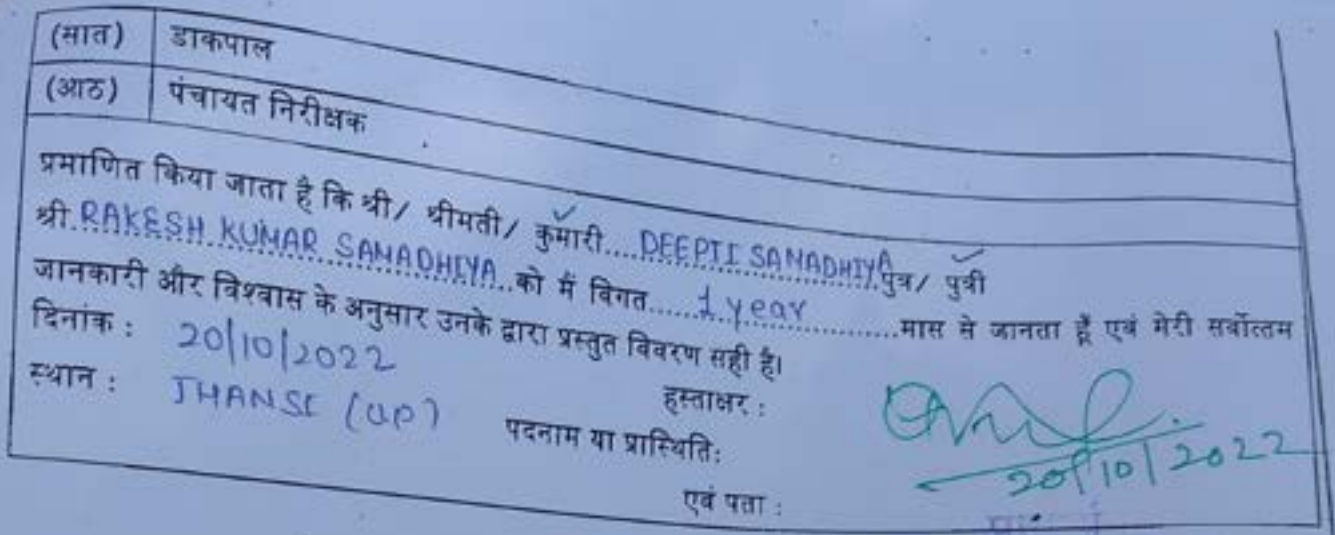 (सात) डाकपाल
(आठ) पंचायत निरीक्षक
प्रमाणित किया जाता है कि श्री/ श्रीमती/ कुमारी....DEEPTI SANADHIYA.पुत्र/ पुत्री
श्री.RAKESH KUMAR SANADHIYA..को मैं विगत.....1 year..................मास से जानता हूँ एवं मेरी सर्वोत्तम
जानकारी और विश्वास के अनुसार उनके द्वारा प्रस्तुत विवरण सही है।
दिनांक : 20/10/2022
हस्ताक्षर :
स्थान : JHANSI (UP)
20/10/2022
पदनाम या प्रास्थिति:
एवं पता :